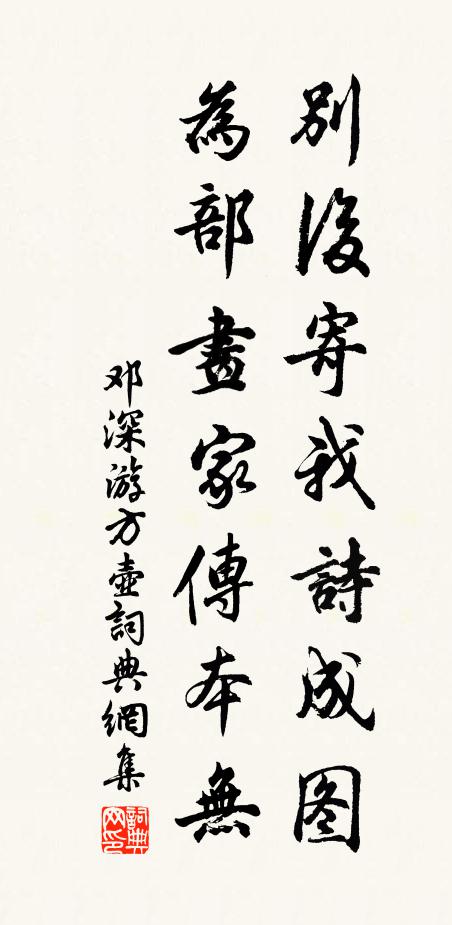 別後寄我詩成图
為部畫家傳本無
邓深游方壺詞典網集
詞典
网印